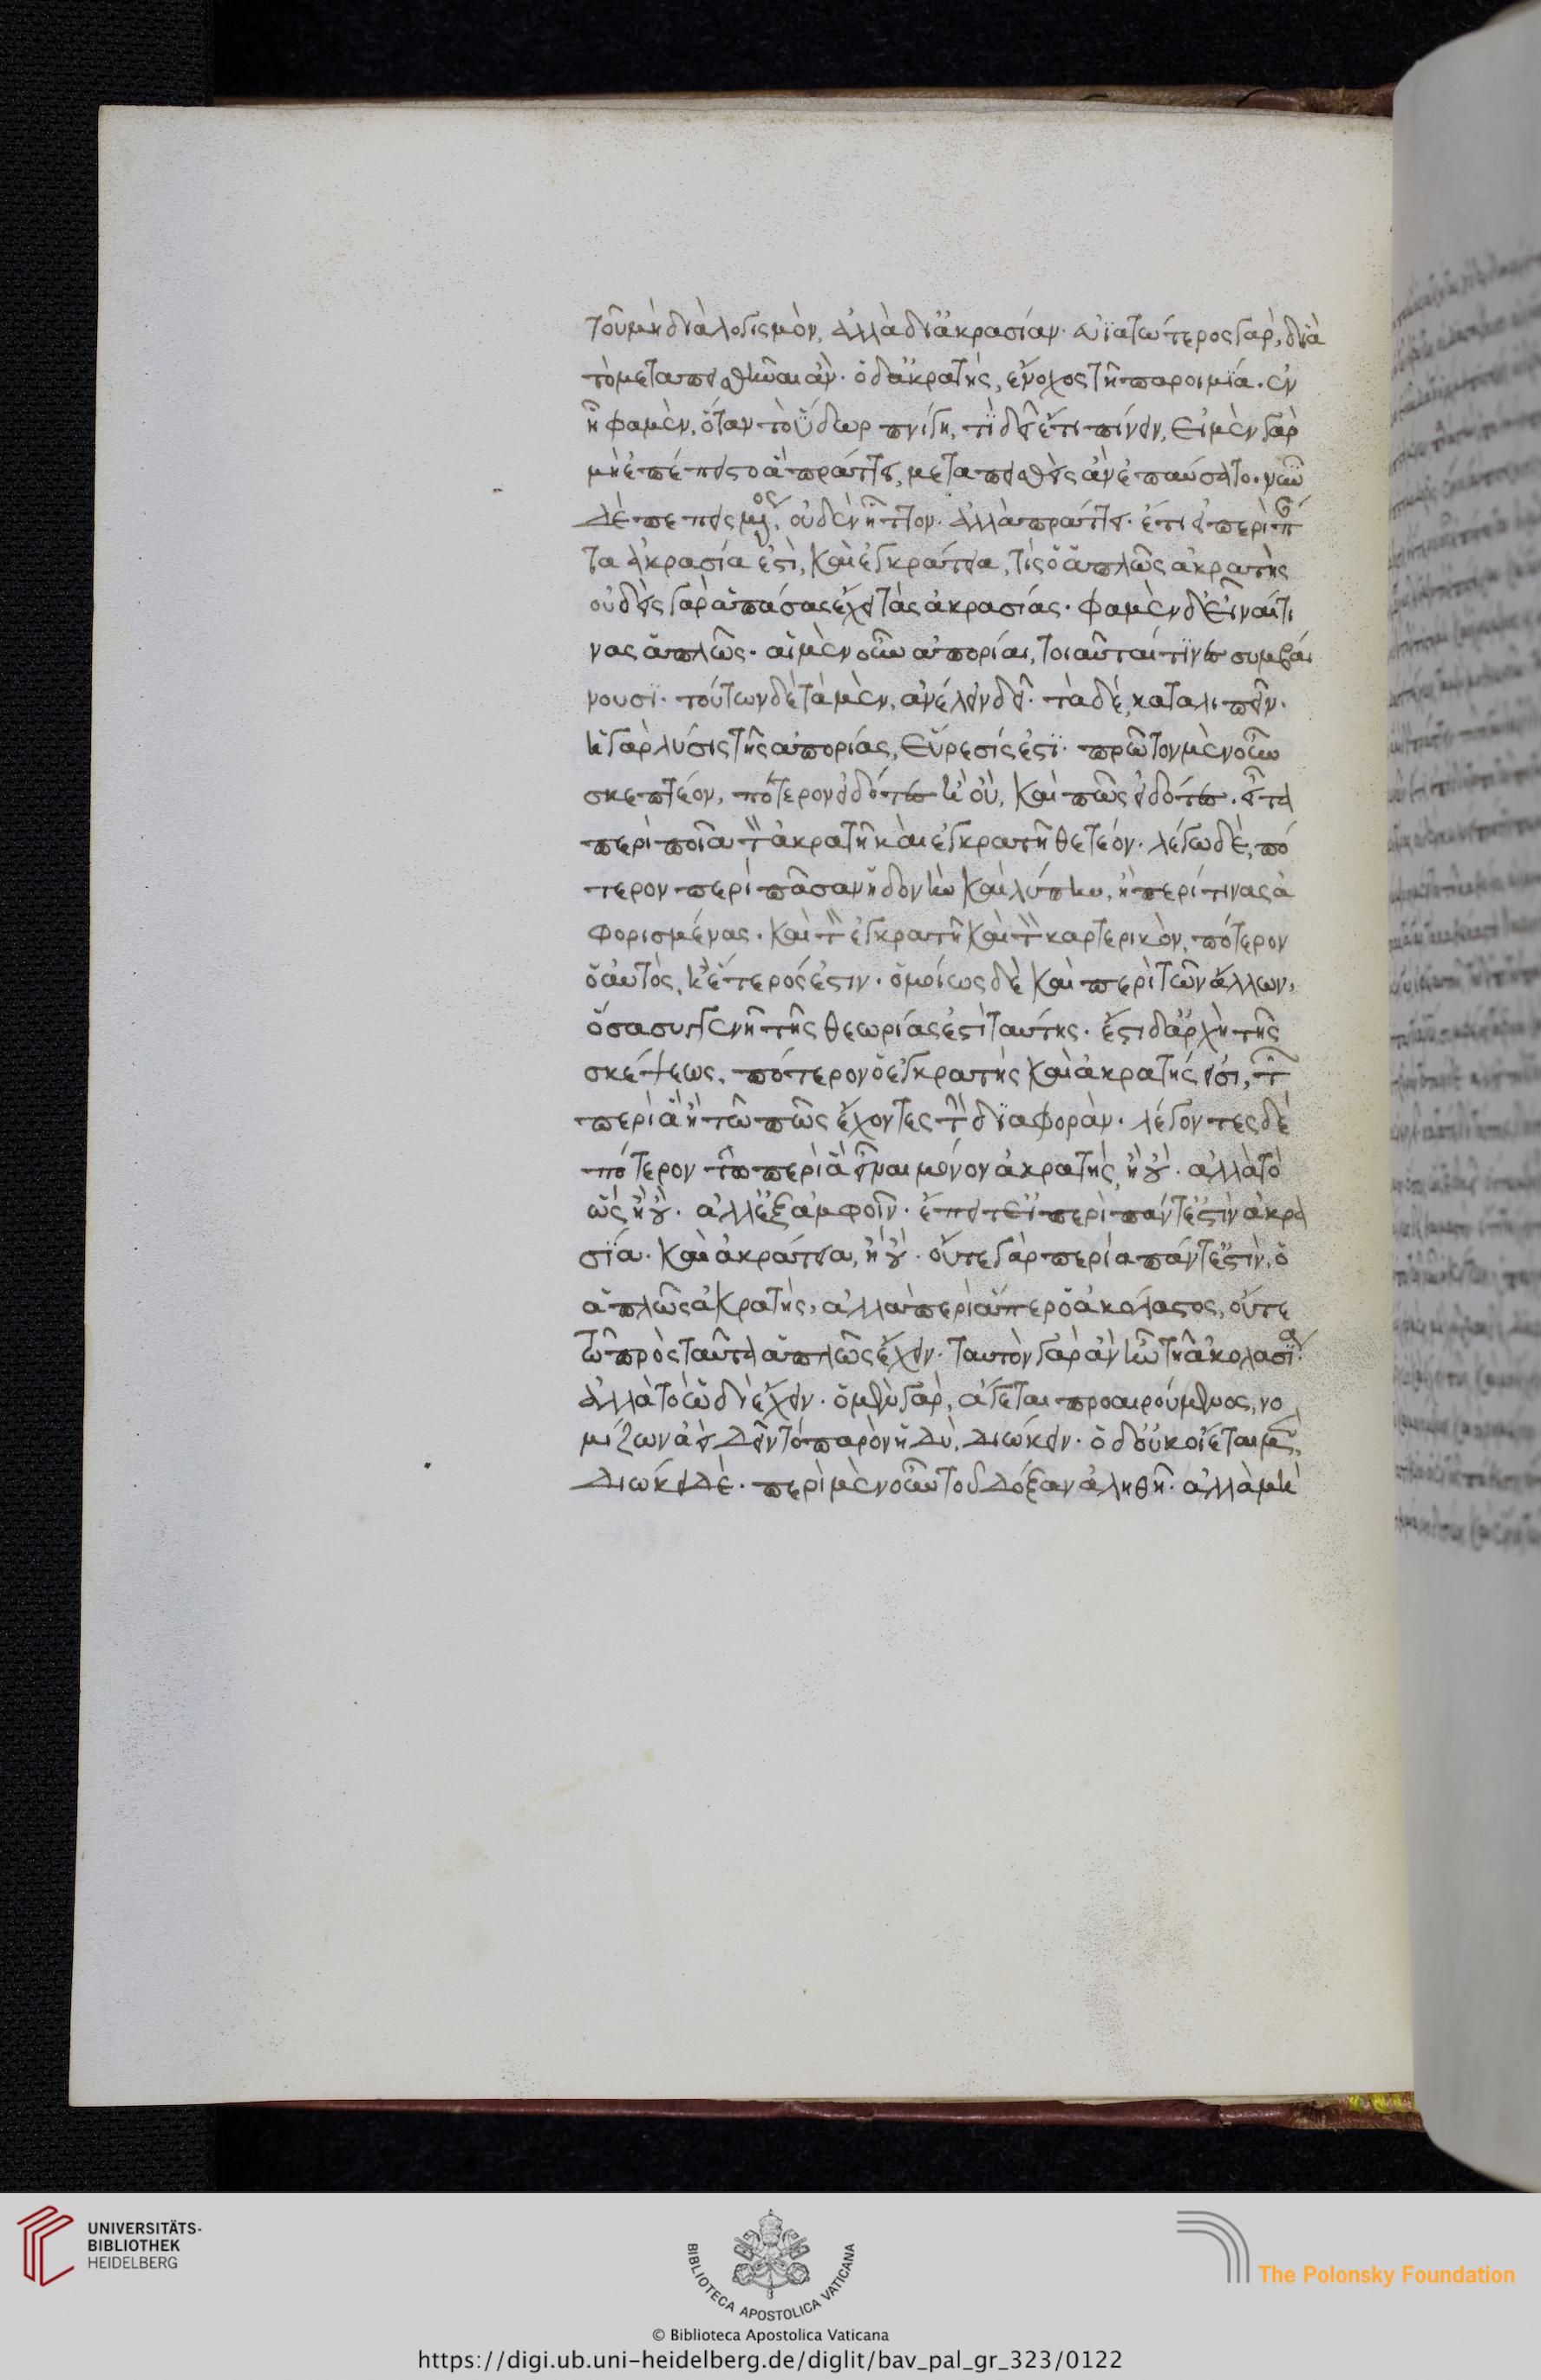 τοῦ μὴ διὰ λογισμὸν, ἀλλὰ δι' ἀκρασίαν· εὐϊατώτερος γὰρ, διὰ
τὸ μεταπεισθῆναι ἂν· ὁ δ' ἀκρατὴς, ἔνοχος τῆ παροιμία· ἐν
ἧ φαμὲν, ὅταν τὸ ὕδωρ πνίγη, τί δεῖ ἔτι πίνειν, εἰ μὲν γὰρ
μὴ ἐπέπειστο ἃ πράττει, μεταπεισθεὶς ἂν ἐπαύσατο· νῦν
δὲ πεπεισμένος, οὐδὲν ἧττον ἀλλὰ πράττει· ἔτι εἰ περὶ πάν
τα ἀκρασία ἐστὶ, καὶ ἐγκράτεια, τίς ὁ ἁπλῶς ἀκρατὴς
οὐδεὶς γὰρ ἁπάσας ἔχει τὰς ἀκρασίας· φαμὲν δ' εἶναί τι
νας ἁπλῶς· αἱ μὲν οὖν ἀπορίαι, τοιαῦταί τινες συμβαί
νουσι· τούτων δὲ τὰ μὲν, ἀνελεῖν δεῖ· τὰ δὲ, καταλιπεῖν·
ἡ γὰρ λύσις τῆς ἀπορίας, εὕρεσίς ἐστι· πρῶτον μὲν οὖν
σκεπτέον, πότερον εἰδότες ἢ οὐ, καὶ πῶς εἰδότες· εἶτα
περὶ ποῖα τὸν ἀκρατῆ καὶ ἐγκρατῆ θετέον· λέγω δὲ, πό
τερον περὶ πᾶσαν ἡδονὴν καὶ λύπην, ἢ περί τινας ἀ
φορισμένας· καὶ τὸν ἐγκρατῆ καὶ τὸν καρτερικὸν, πότερον
ὁ αὐτὸς, ἢ ἕτερός ἐστιν· ὁμοίως δὲ καὶ περὶ τῶν ἄλλων,
ὅσα συγγενῆ τῆς θεωρίας ἐστὶ ταύτης· ἔστι δ' ἀρχὴ τῆς
σκέψεως, πότερον ὁ ἐγκρατὴς καὶ ἀκρατής εἰσι, τῶ
περὶ ἃ ἢ τῶ πῶς ἔχοντες τὴν διαφορὰν· λέγοντες δὲ
πότερον τῶ περὶ ἃ εἶναι μόνον ἀκρατὴς, ἢ οὐ· ἀλλὰ τὸ
ὥς ἢ οὐ· ἀλλ' ἐξ ἀμφοῖν· ἔπειτ' εἰ περὶ πάντ' ἐστὶν ἀκρα
σία· καὶ ἀκράτεια, ἢ οὐ· οὔτε γὰρ περὶ ἁπάντ' ἐστὶν, ὁ
ἁπλῶς ἀκρατὴς, ἀλλὰ περὶ ἅπερ ὁ ἀκόλαστος, οὔτε
τῶ πρὸς ταῦτα ἁπλῶς ἔχειν· ταυτὸν γὰρ ἂν ἦν τῆ ἀκολασία·
ἀλλὰ τὸ ὡδὶ ἔχειν· ὁ μὲν γὰρ, ἄγεται προαιρούμενος, νο
μίζων ἀεὶ δεῖν τὸ παρὸν ἡδὺ, διώκειν· ὁ δ' οὐκ οἴεται μὲν,
διώκει δὲ· περὶ μὲν οὖν τοῦ δόξαν ἀληθῆ· ἀλλὰ μὴ
UNIVERSITÄTS-
BIBLIOTHEK
HEIDELBERG
BIBLIOTECA APOSTOLICA VATICANA
The Polonsky Foundation
© Biblioteca Apostolica Vaticana
https://digi.ub.uni-heidelberg.de/diglit/bav_pal_gr_323/0122